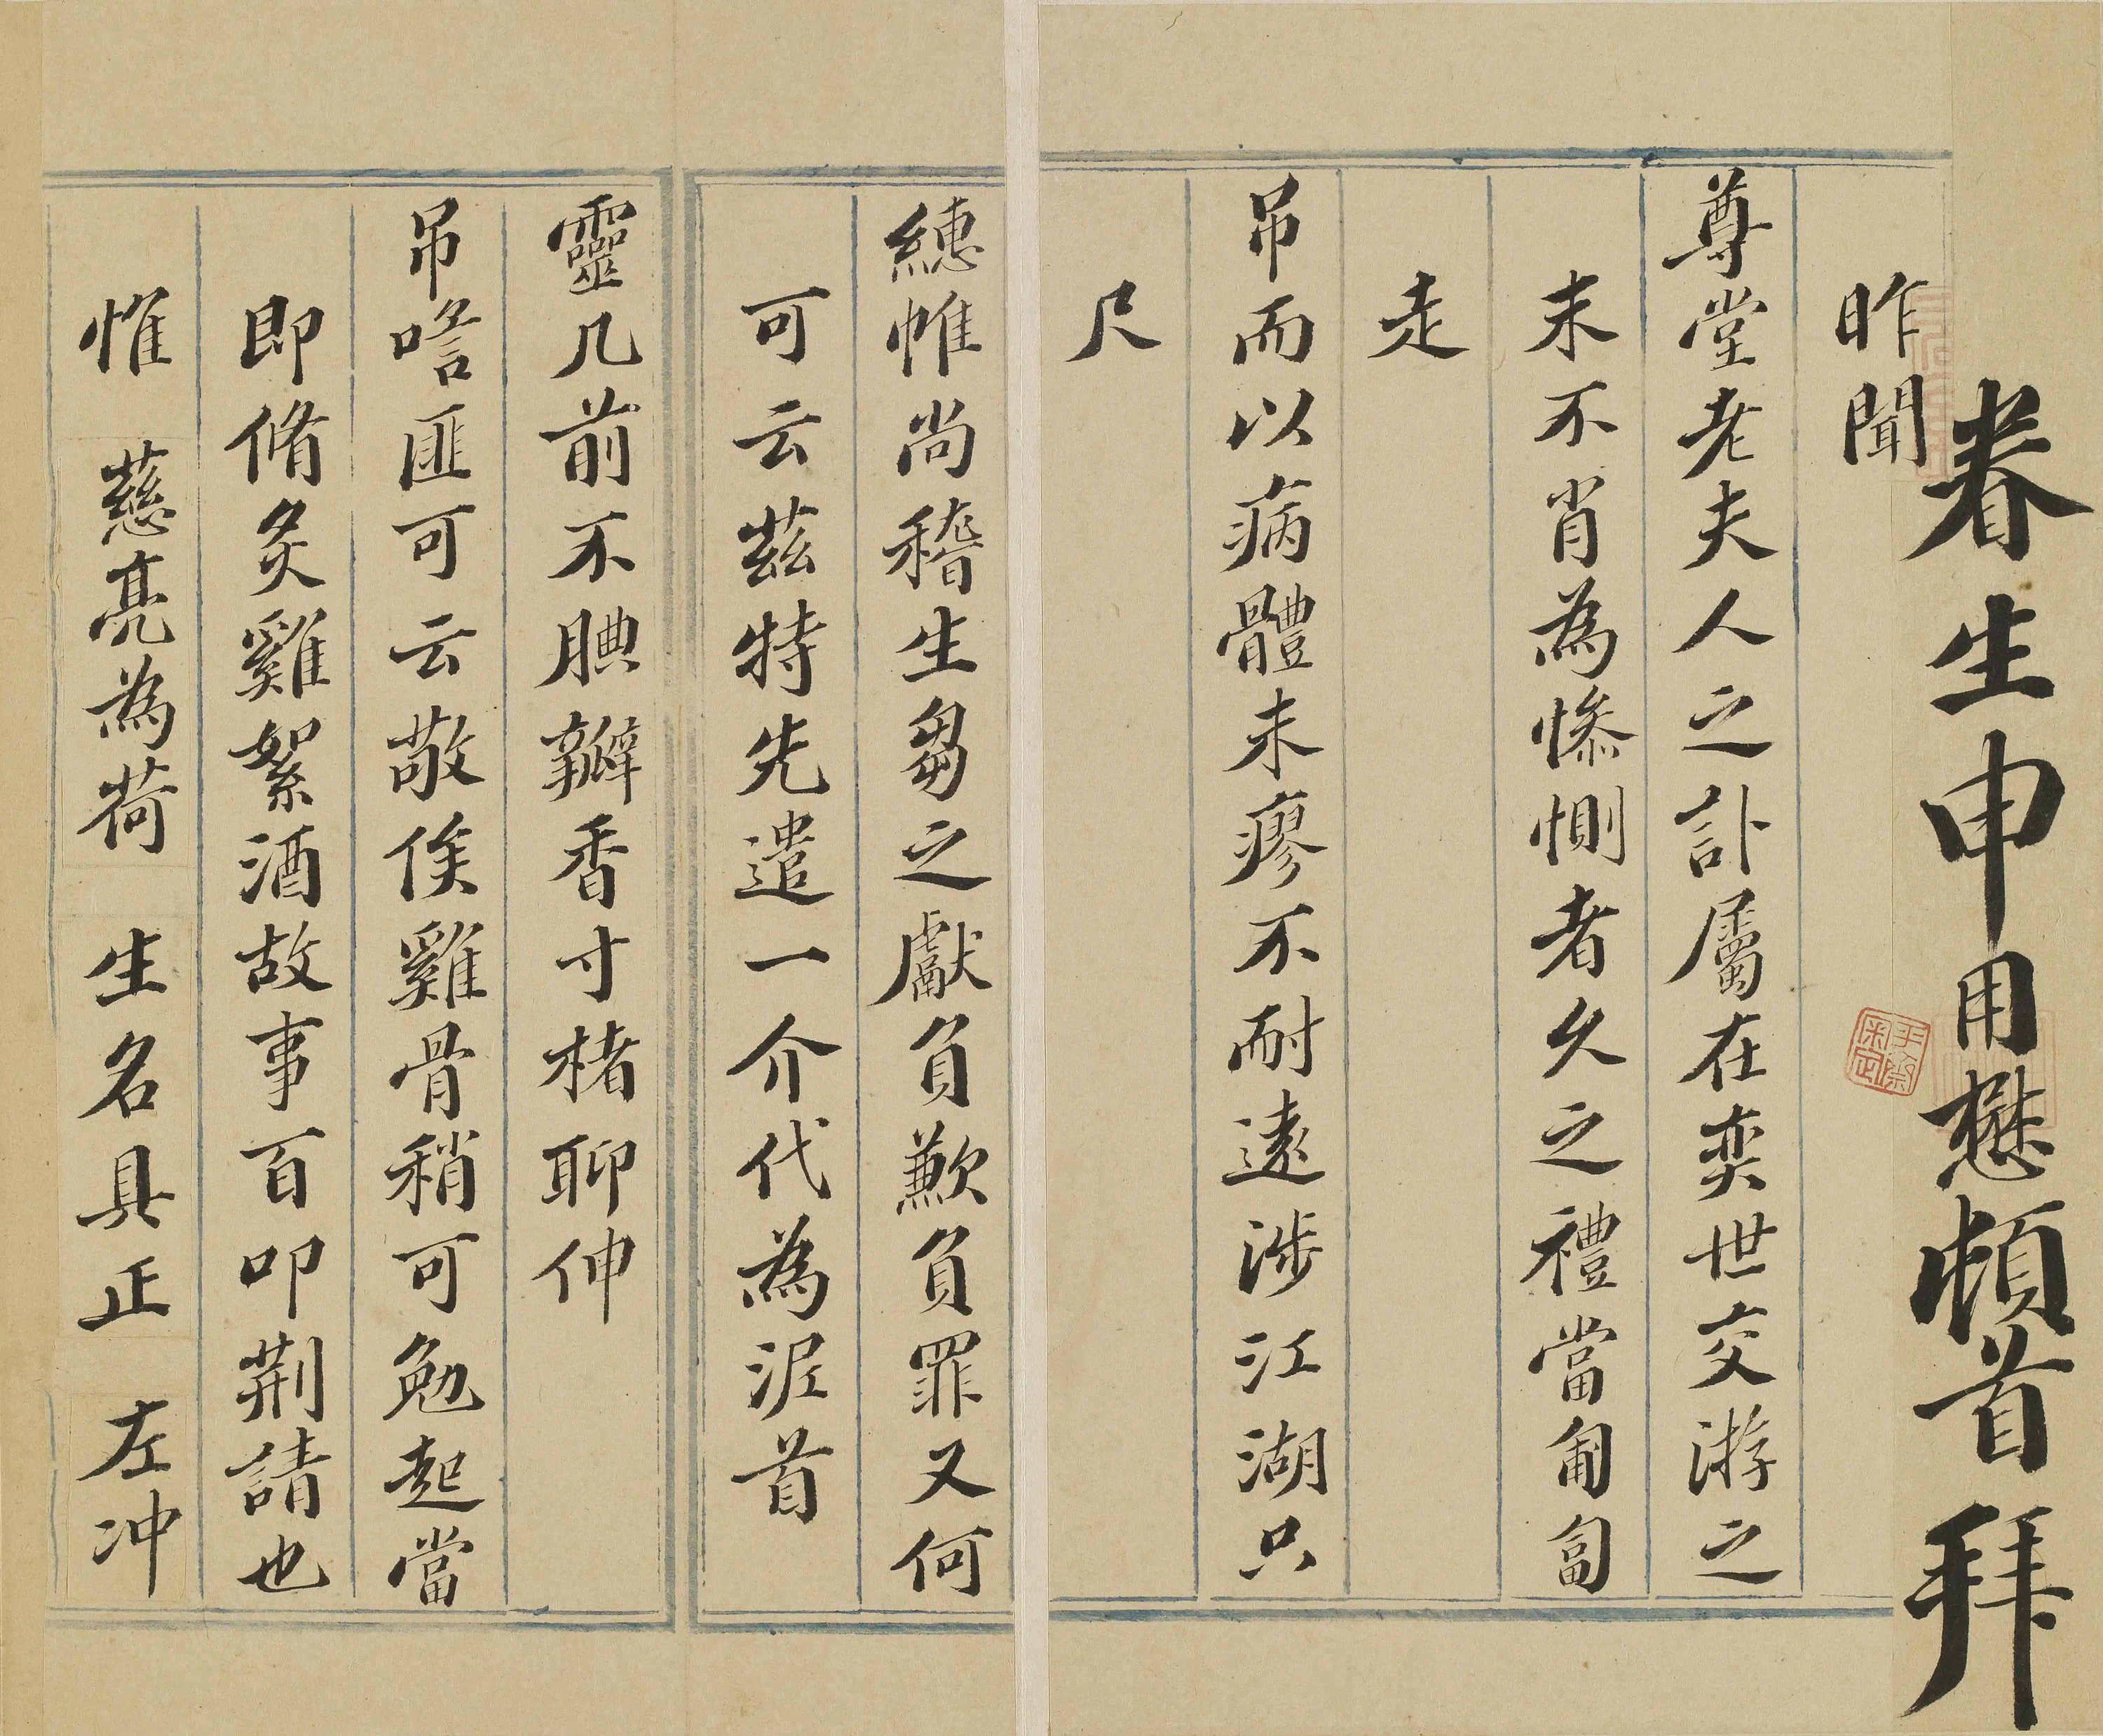 眷生申用懋頓首拜
昨聞
尊堂老夫人之訃屬在奕世交游之
末不肖為慘惻者久之禮當匍匐
走
吊而以病體未瘳不耐遠涉江湖只
尺
繐帷尚稽生芻之獻負歉負罪又何
可云茲特先遣一介代為泥首
靈几前不腆瓣香寸楮聊伸
吊唁匪可云敬俟雞骨稍可勉起當
即脩炙雞絮酒故事百叩荆請也
惟 慈亮為荷 生名具正 左冲